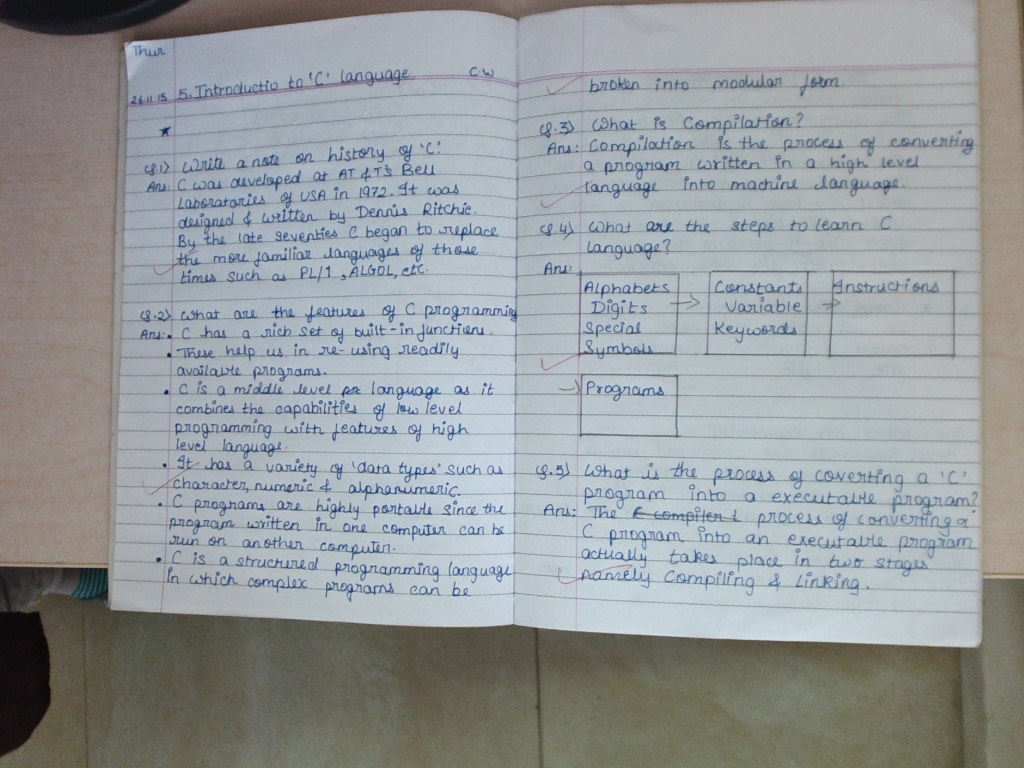 Thur
5. Introductio to 'C' language C.W
26.11.15
Q.1) Write a note on history of 'C'.
Ans: C was developed at AT & T's Bell
Laboratories of USA in 1972. It was
designed & written by Dennis Ritchie.
By the late seventies C began to replace
the more familiar languages of those
times such as PL/1, ALGOL, etc.
Q.2) What are the features of C programming
Ans: • C has a rich set of built-in functions.
• These help us in re-using readily
available programs.
• C is a middle level language as it
combines the capabilities of low level
programming with features of high
level language.
• It has a variety of 'data types' such as
character, numeric & alphanumeric.
• C programs are highly portable since the
program written in one computer can be
run on another computer.
• C is a structured programming language
in which complex programs can be
broken into modular form.
Q.3) What is Compilation?
Ans: Compilation is the process of converting
a program written in a high level
language into machine language.
Q.4) What are the steps to learn C
language?
Ans:
Alphabets
Digits
Special
Symbols
Constants
Variable
Keywords
Instructions
Programs
Q.5) What is the process of coverting a 'C'
program into a executable program?
Ans: The compiler process of converting a
C program into an executable program
actually takes place in two stages
namely Compiling & Linking.